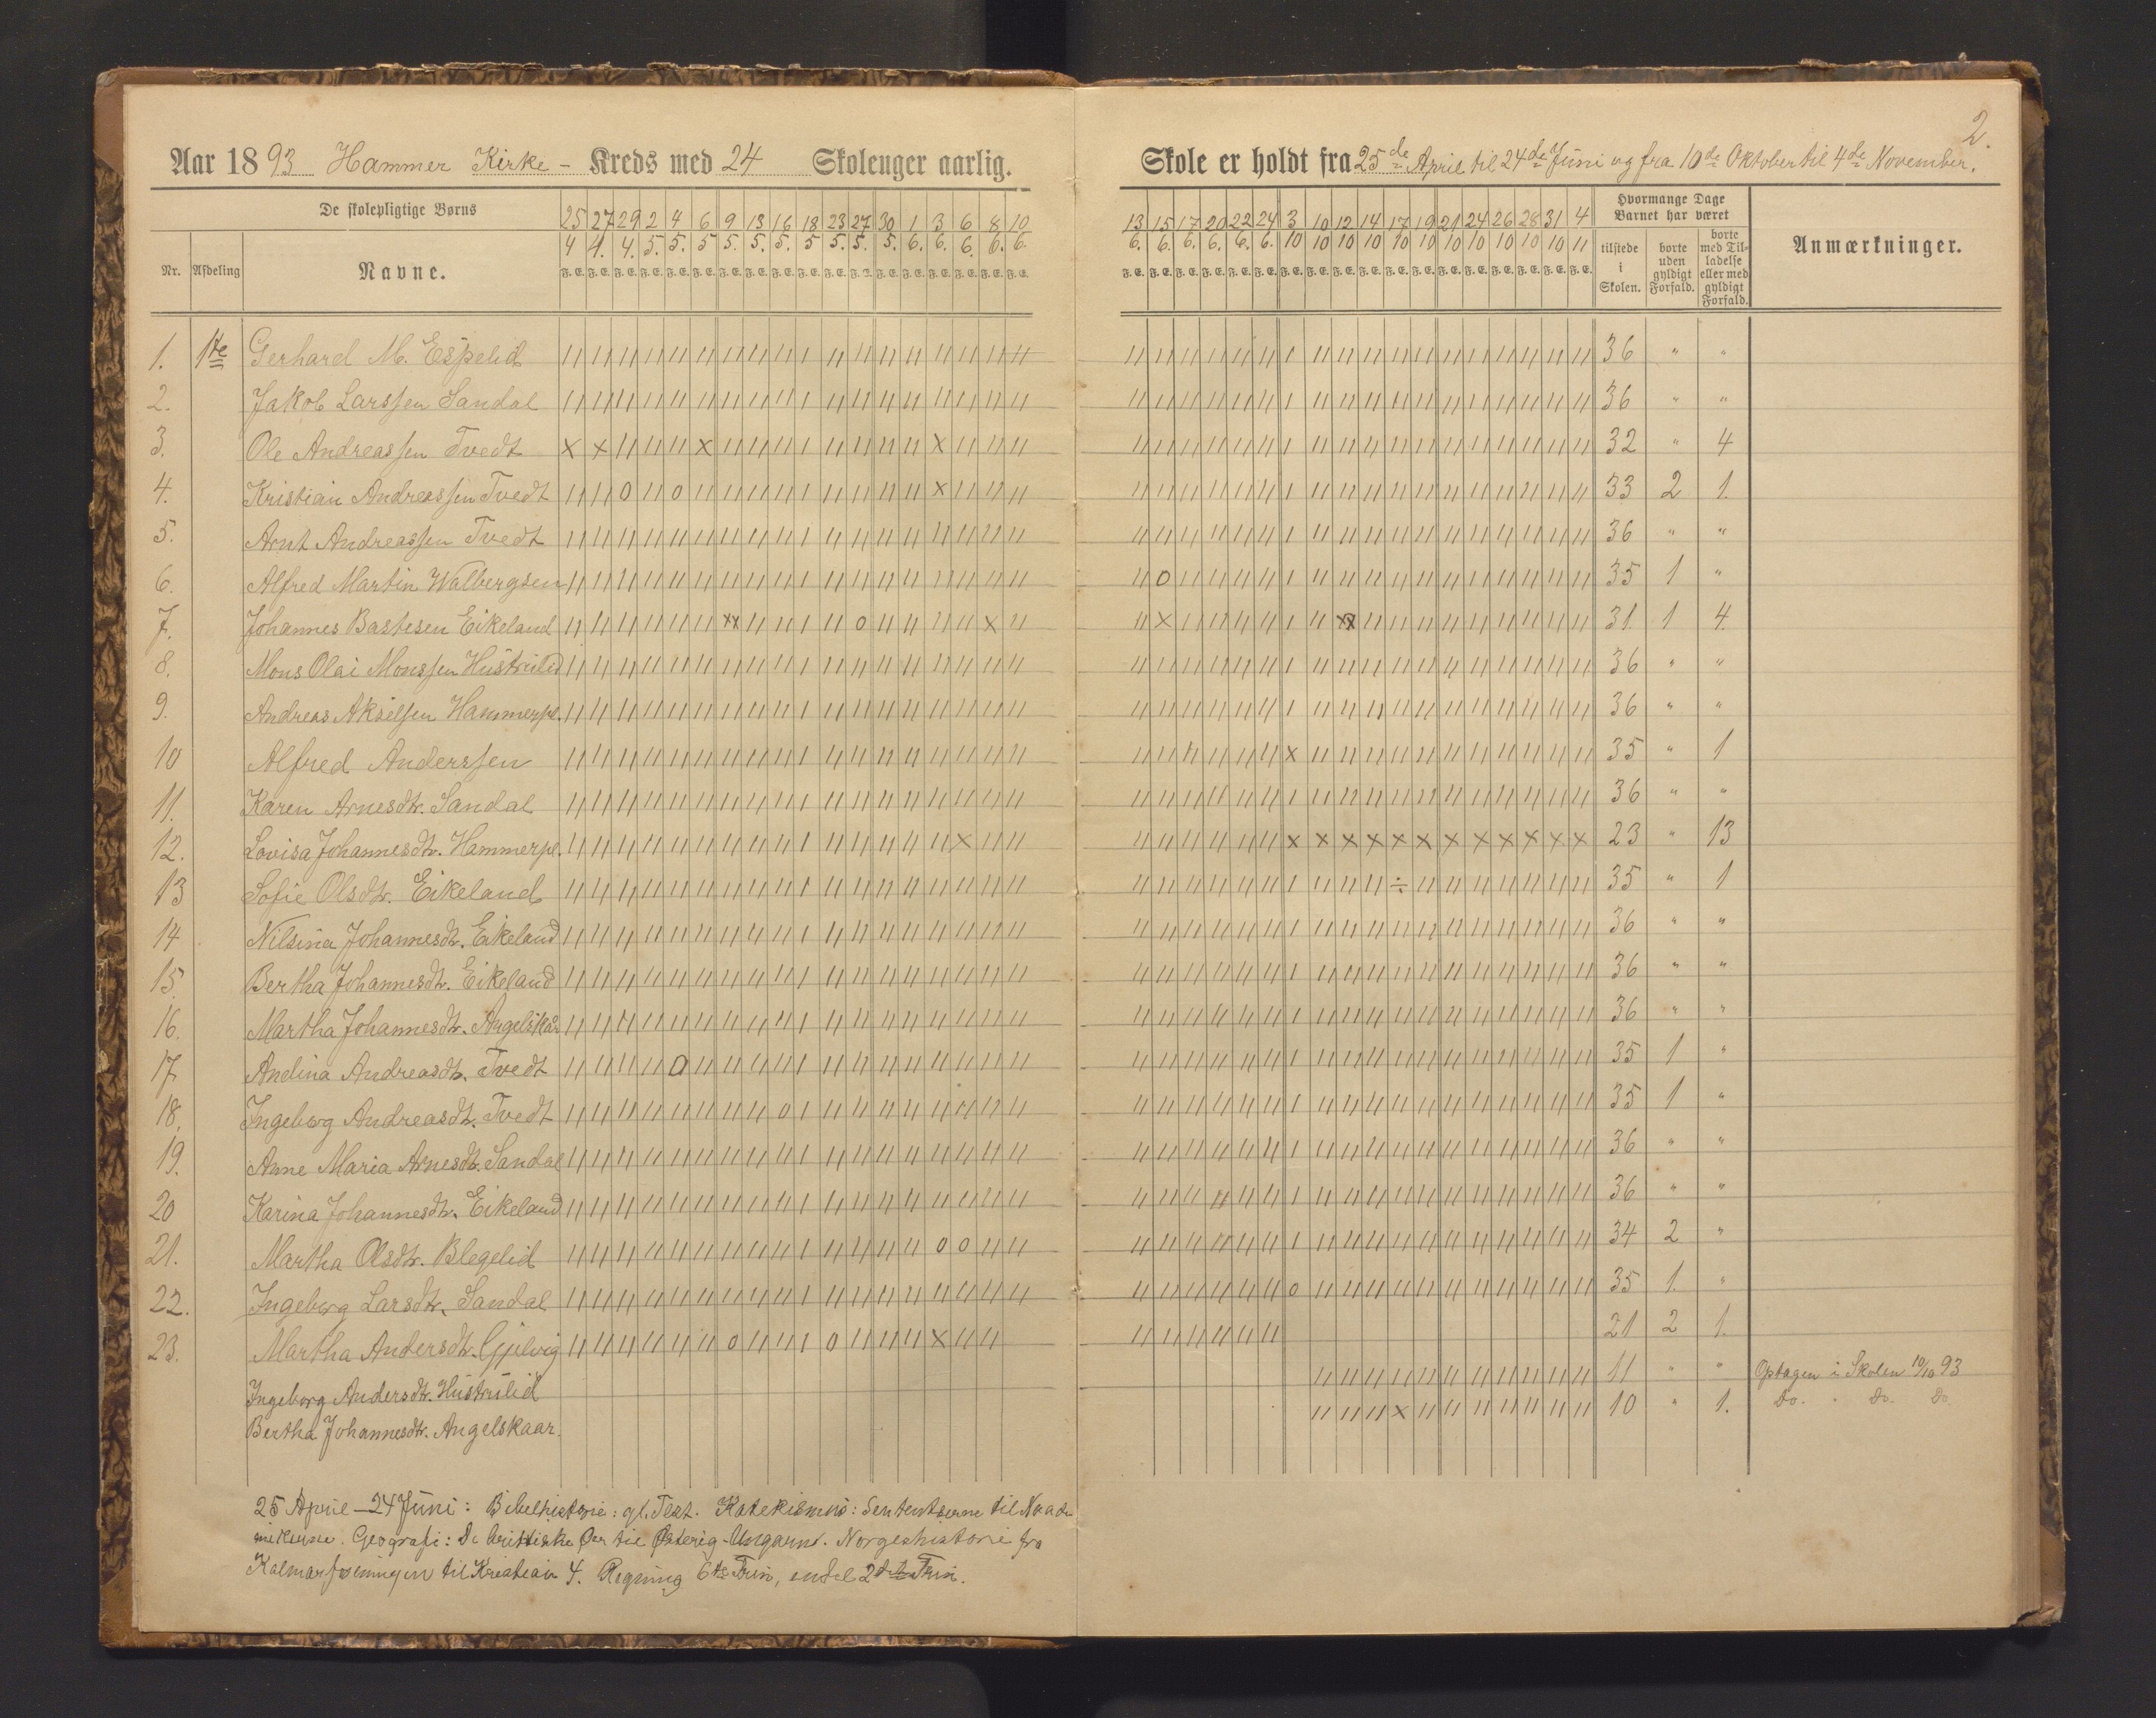 2.
Aar 1893 Hammer Kirke - Kreds med 24 Skoleuger aarlig.
Skole er holdt fra 25de April til 24de Juni og fra 10de Oktober til 4de November.
De skolepligtige Børns
Nr. Afdeling Navne.
25 27 29 2 4 6 9 13 16 18 23 27 30 1 3 6 8 10
4 4. 4. 5. 5. 5 5. 5. 5. 5 5. 5. 5. 6. 6. 6. 6. 6.
F. E. F. E. F. E. F. E. F. E. F. E. F. E. F. E. F. E. F. E. F. E. F. E. F. E. F. E. F. E. F. E. F. E. F. E.
13 15 17 20 22 24 3 10 12 14 17 19 21 24 26 28 31 4
6. 6. 6. 6. 6. 6. 10 10 10 10 10 10 10 10 10 10 10 11
F. E. F. E. F. E. F. E. F. E. F. E. F. E. F. E. F. E. F. E. F. E. F. E. F. E. F. E. F. E. F. E. F. E. F. E.
Hvormange Dage Barnet har været
tilstede i Skolen.
borte uden gyldigt Forfald.
borte med Tilladelse eller med gyldigt Forfald.
Anmærkninger.
1. 1ste Gerhard M. Espelid 36 " "
2. Jakob Larssen Sandal 36 " "
3. Ole Andreassen Tvedt 32 " 4
4. Kristian Andreassen Tvedt 33 2 1.
5. Arnt Andreassen Tvedt 36 " "
6. Alfred Martin Walbergsen 35 1 "
7. Johannes Bastesen Eikeland 31. 1 4.
8. Mons Olai Monssen Hustrulid 36 " "
9. Andreas Akselsen Hammerpl. 36 " "
10 Alfred Anderssen 35 " 1
11. Karen Arnesdtr. Sandal 36 " "
12. Lovisa Johannesdtr. Hammerpl. 23 " 13
13 Sofie Olsdtr. Eikeland 35 " 1
14 Nilsina Johannesdtr. Eikeland 36 " "
15. Bertha Johannesdtr. Eikeland 36 " "
16. Martha Johannesdtr. Angelskår 36 " "
17. Andina Andreasdtr. Tvedt 35 1 "
18. Ingeborg Andreasdtr. Tvedt 35 1 "
19. Anne Maria Arnesdtr. Sandal 36 " "
20 Karina Johannesdtr. Eikeland 36 " "
21. Martha Olsdtr. Blegelid 34 2 "
22. Ingeborg Larsdtr. Sandal 35 1. "
23. Martha Andersdtr. Gjelvig 21 2 1.
Ingeborg Andersdtr. Hustrulid 11 " " Optagen i Skolen 10/10 93
Bertha Johannesdtr. Angelskaar. 10 " 1. Do. " Do. Do.
25 April - 24 Juni: Bibelhistorie: gl. Test. Katekismus: Sententserne til Naade
midlerne. Geografi: De brittiske Øer til Østerig-Ungarn. Norgeshistorie fra
Kalmarforeningen til Kristian 4. Regning 6te Trin, endel 2det Trin.